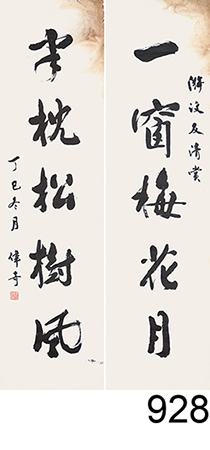 一窗梅花月
清賞
半枕松樹風
丁巳冬月 偉奇
928